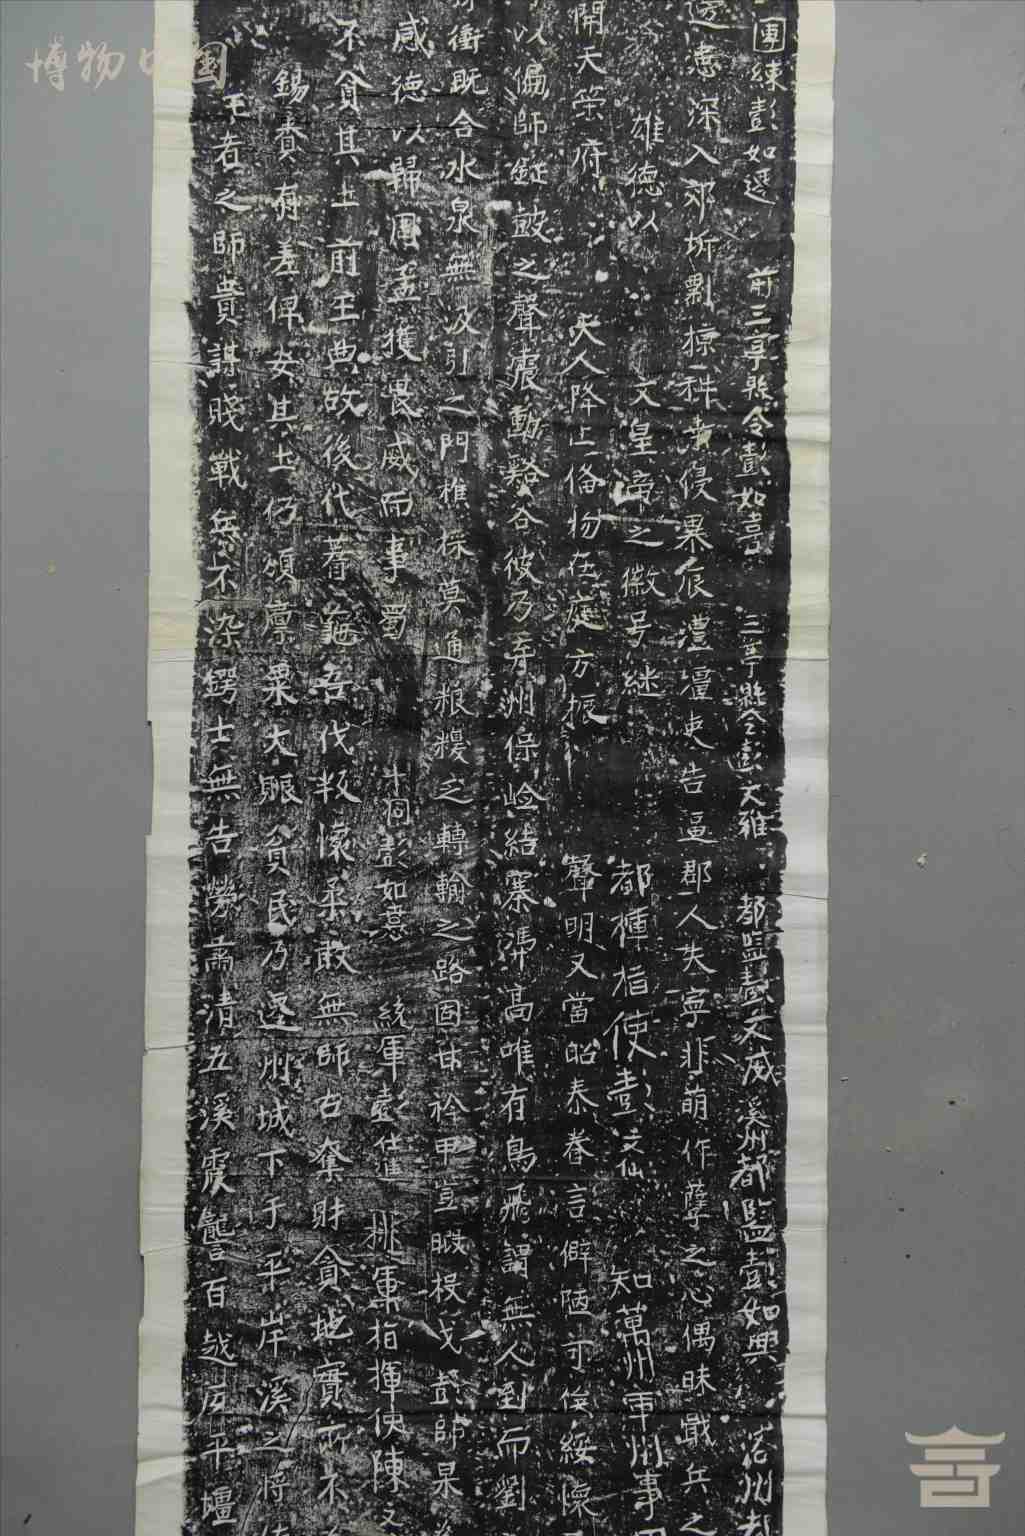 博物中国
團練彭如遷 前三亭縣令彭如喜 三亭縣令彭文雅 都監彭文威 溪州都監彭如興 溶州都
深入郊圻剽掠耕桑侵暴辰澧疆吏告逼郡人失寧非萌作孽之心偶昧戢兵之
雄德以 文皇帝之徽号継 都 指使彭文仙 知萬州軍州事
開天策府 天人降止俻物在庭方振 聲明又當昭泰眷言僻陋可俟綏懷
以偏師鉦皷之聲震動谿谷彼乃弃州保嶮結寨馮高唯有鳥飛謂無人到而劉
衝既合水泉無汲引之門樵採莫通粮糗之轉輸之路固甘衿甲豈暇投戈彭師杲
感德以歸國孟獲畏威而事蜀 牛洞彭如意 統軍彭仕 排軍指揮使陳文
不貪其土前王典故後代蓍龜吾伐叛懷柔敢無師古奪財貪地實所不
錫賚有差俾安其土仍頒廪粟大賑貧民乃遷州城下于平岸 溪之將
王者之師貴謀賤戰兵不染鍔士無告勞肅清五溪震讋百越厎平壇